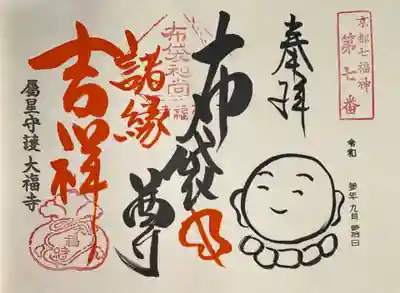 京都七福神
第七番
奉拝
令和 参年 九月 参拾日
布袋尊
布袋和尚
諸縁
吉祥
属星守護 大福寺